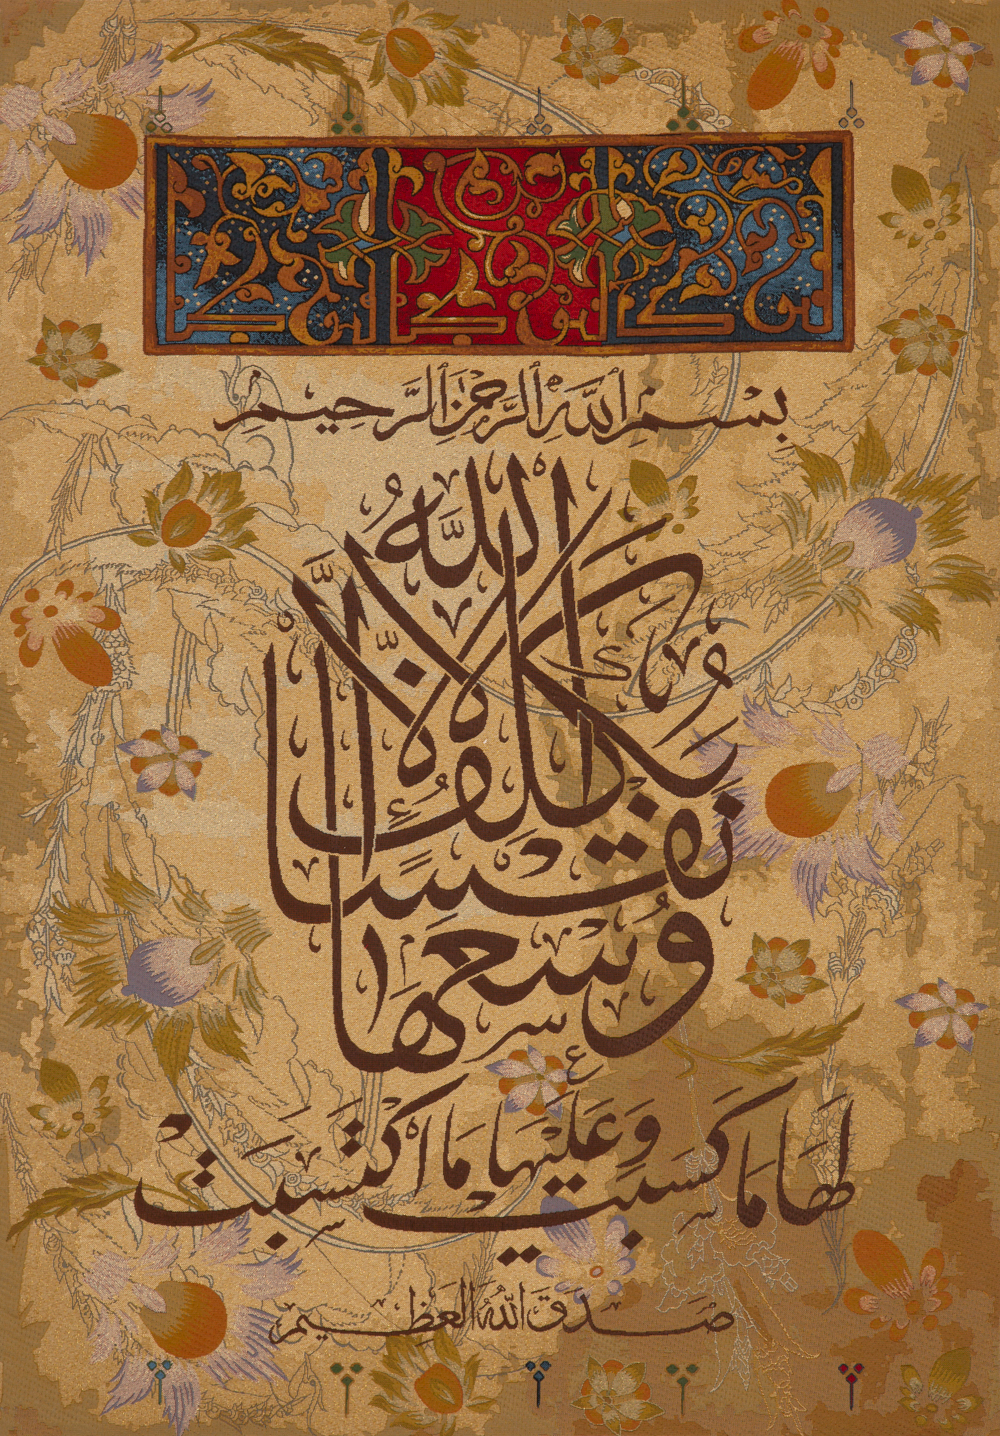 بِسْمِ ٱللَّهِ ٱلرَّحْمَٰنِ ٱلرَّحِيمِ
لَا يُكَلِّفُ ٱللَّهُ
نَفْسًا إِلَّا
وُسْعَهَا
لَهَا مَا كَسَبَتْ وَعَلَيْهَا مَا ٱكْتَسَبَتْ
صَدَقَ اللهُ العَظِيم